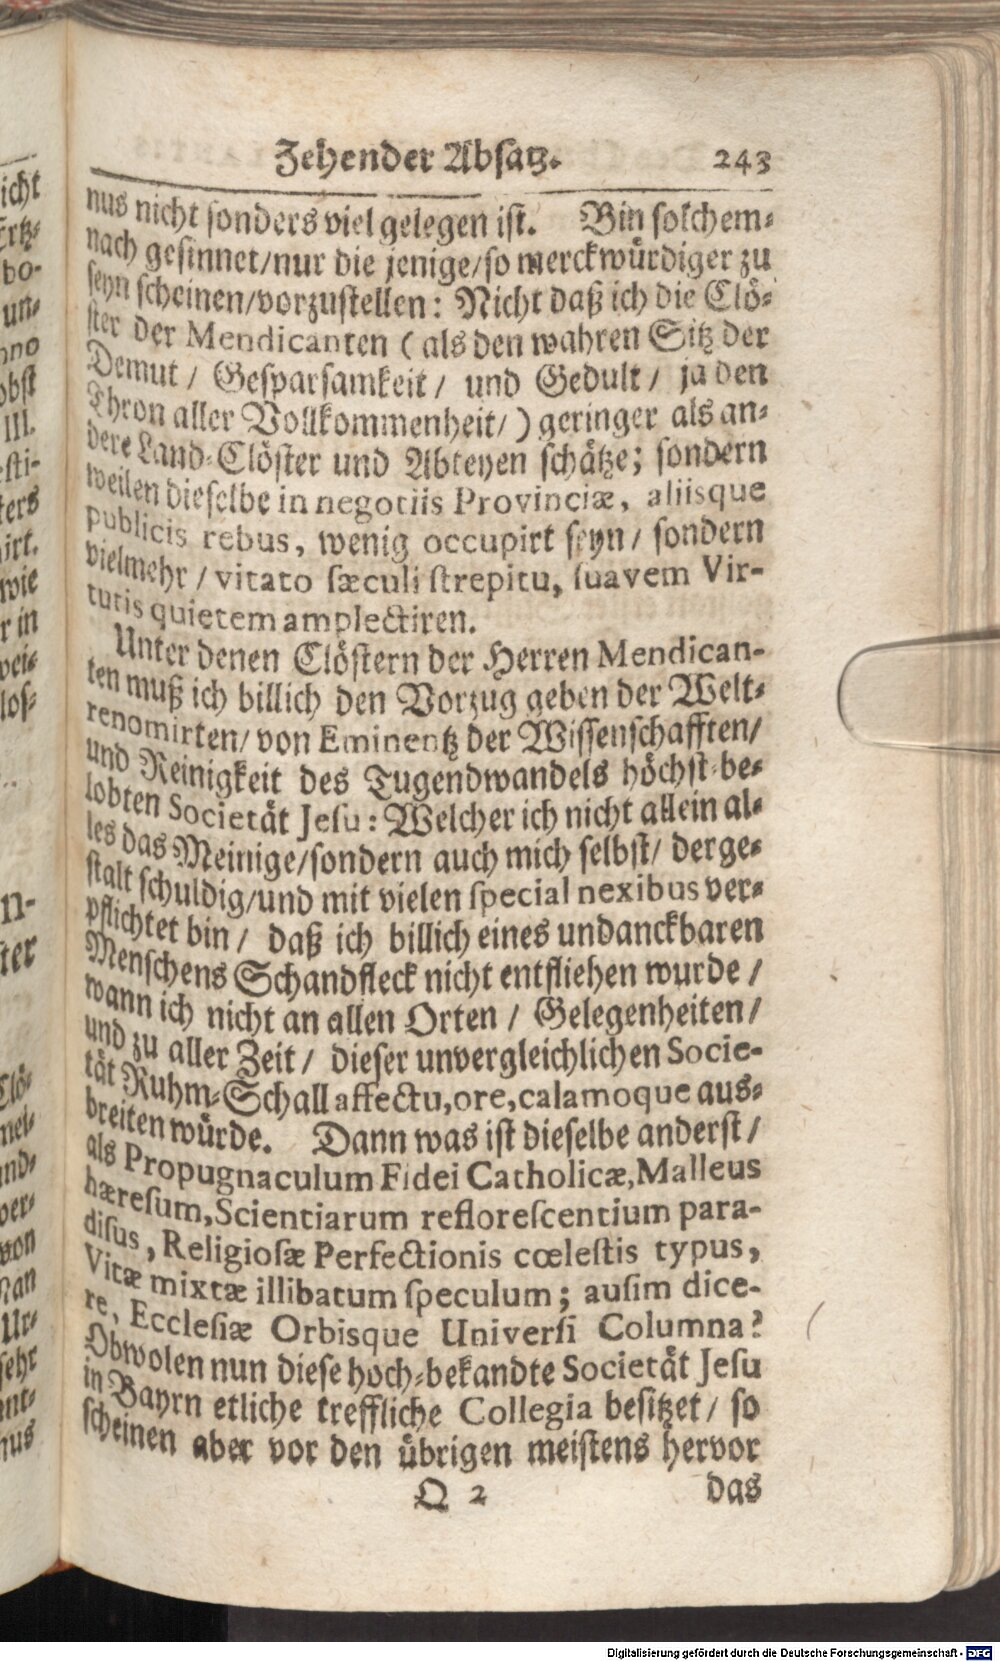 Zehender Absatz. 243
nus nicht sonders viel gelegen ist. Bin solchem-
nach gesinnet/nur die jenige/so merckwürdiger zu
seyn scheinen/vorzustellen: Nicht daß ich die Clö-
ster der Mendicanten ( als den wahren Sitz der
Demut / Gesparsamkeit / und Gedult / ja den
Thron aller Vollkommenheit/ ) geringer als an-
dere Land-Clöster und Abteyen schätze; sondern
weilen dieselbe in negotiis Provinciæ, aliisque
publicis rebus, wenig occupirt seyn / sondern
vielmehr / vitato sæculi strepitu, suavem Vir-
tutis quietem amplectiren.
Unter denen Clöstern der Herren Mendican-
ten muß ich billich den Vorzug geben der Welt-
renomirten/ von Eminentz der Wissenschafften/
und Reinigkeit des Tugendwandels höchst-be-
lobten Societät Jesu: Welcher ich nicht allein al-
les das Meinige/sondern auch mich selbst/ derge-
stalt schuldig/und mit vielen special nexibus ver-
pflichtet bin / daß ich billich eines undanckbaren
Menschens Schandfleck nicht entfliehen wurde /
wann ich nicht an allen Orten / Gelegenheiten/
und zu aller Zeit / dieser unvergleichlichen Socie-
tät Ruhm-Schall affectu, ore, calamoque aus-
breiten würde. Dann was ist dieselbe anderst /
als Propugnaculum Fidei Catholicæ, Malleus
hæresum, Scientiarum reflorescentium para-
disus, Religiosæ Perfectionis cœlestis typus,
Vitæ mixtæ illibatum speculum; ausim dice-
re, Ecclesiæ Orbisque Universi Columna?
Obwolen nun diese hoch-bekandte Societät Jesu
in Bayrn etliche treffliche Collegia besitzet / so
scheinen aber vor den übrigen meistens hervor
Q 2 das
Digitalisierung gefördert durch die Deutsche Forschungsgemeinschaft - DFG